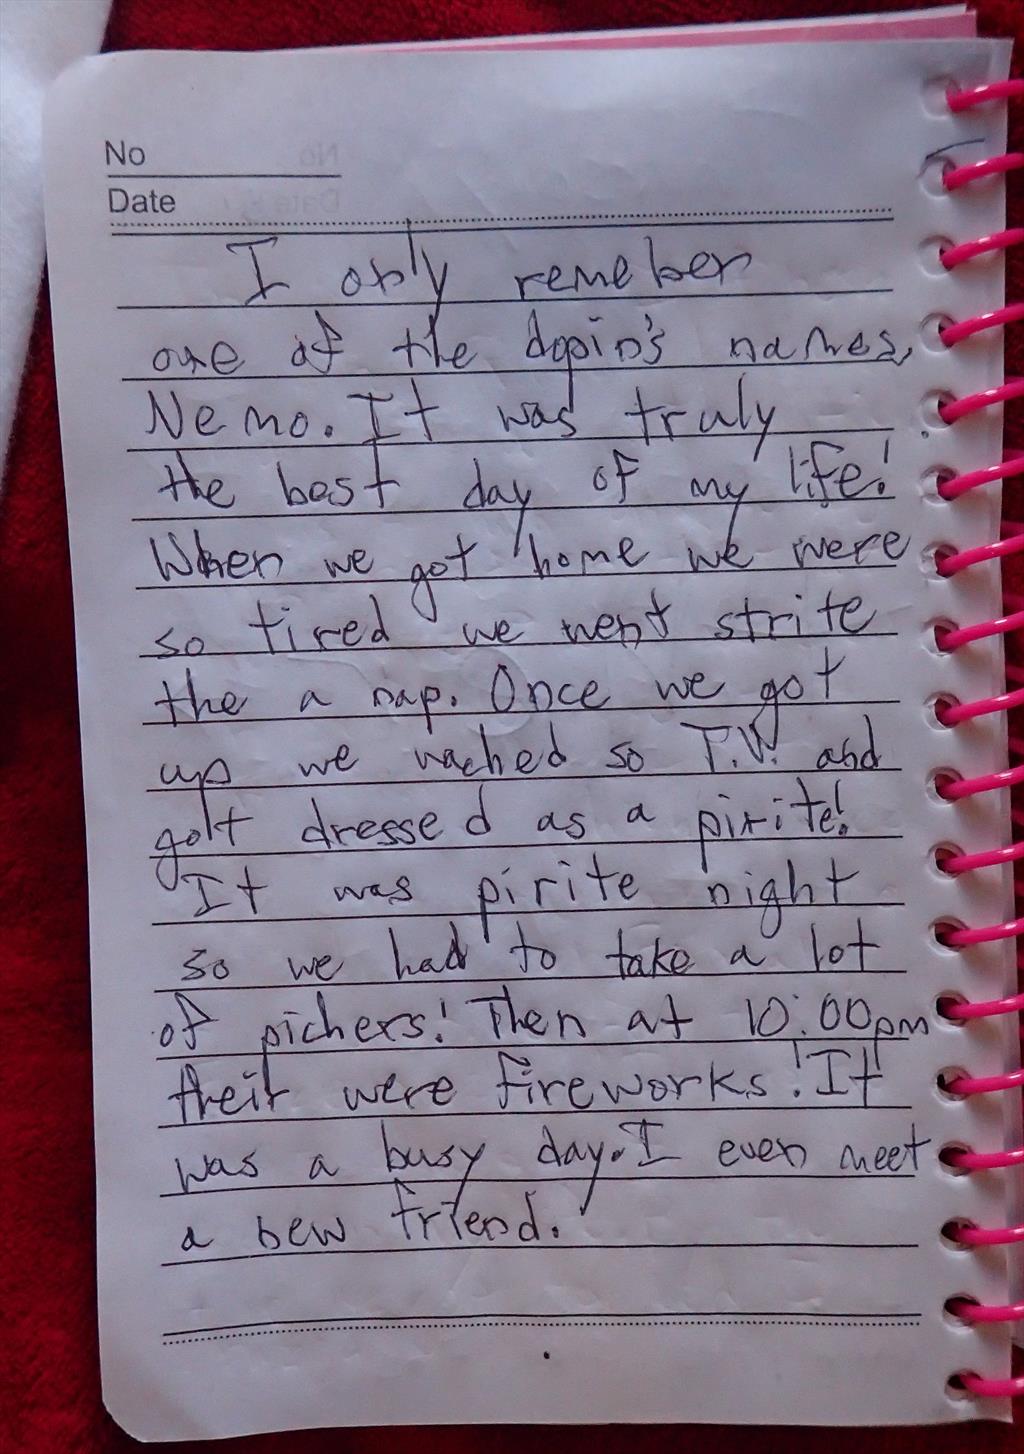 No
Date
I only remeber
one of the dopin's names,
Nemo. It was truly
the best day of my life!
When we got home we were
so tired we went strite
the a nap. Once we got
up we wached so T.V. and
got dressed as a pirite!
It was pirite night
so we had to take a lot
of pichers! Then at 10:00pm
their were fireworks! It
was a busy day. I even meet
a new friend.